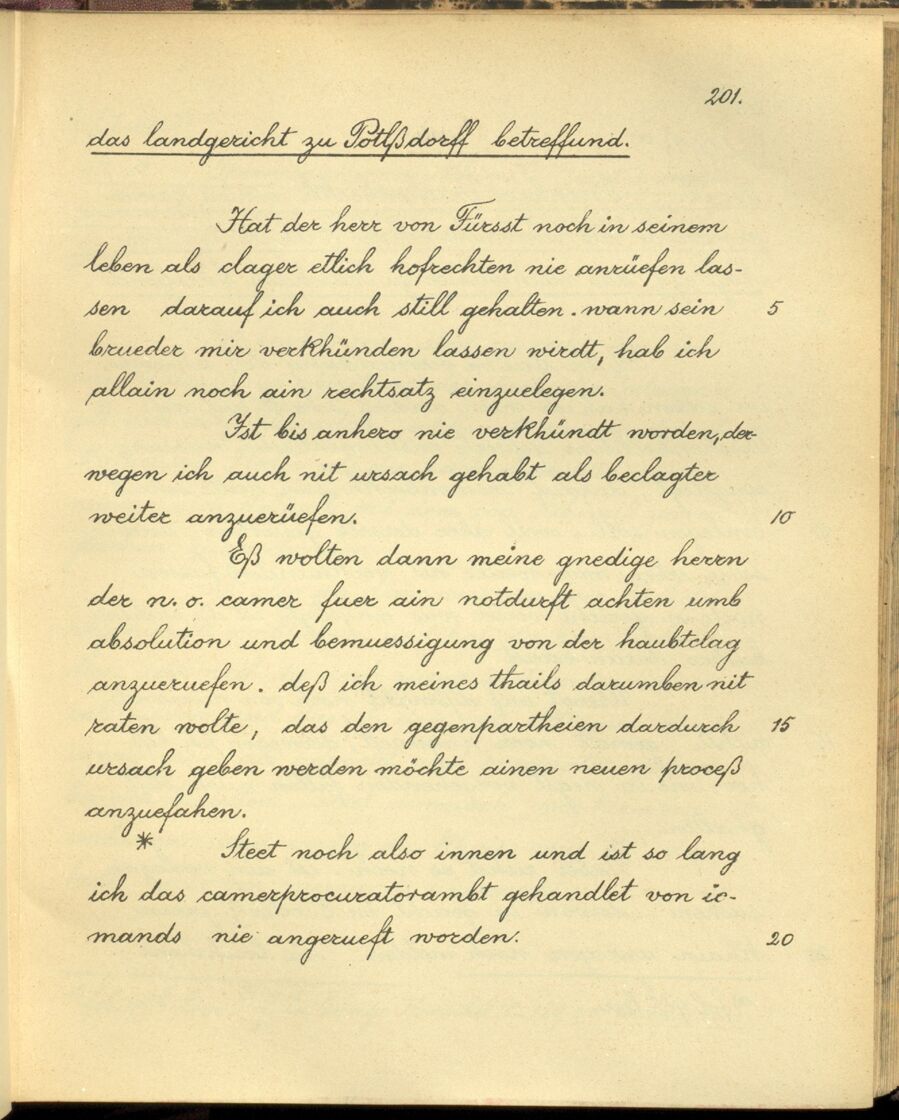 201.
das landgericht zu Potlßdorff betreffund.
Hat der herr von Fürsst noch in seinem
leben als clager etlich hofrechten nie anrüefen las-
sen darauf ich auch still gehalten. wann sein 5
brueder mir verkhünden lassen wirdt, hab ich
allain noch ain rechtsatz einzuelegen.
Ist bis anhero nie verkhündt worden, der-
wegen ich auch nit ursach gehabt als beclagter
weiter anzuerüefen. 10
Eß wolten dann meine gnedige herrn
der n. o. camer fuer ain notdurft achten umb
absolution und bemuessigung von der haubtclag
anzueruefen. deß ich meines thails darumben nit
raten wolte, das den gegenpartheien dardurch 15
ursach geben werden möchte ainen neuen proceß
anzuefahen.
* Steet noch also innen und ist so lang
ich das camerprocuratorambt gehandlet von ie-
mands nie angerueft worden. 20